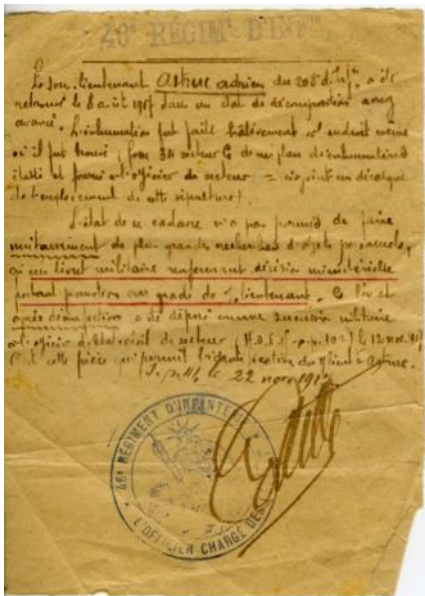 46e RÉGIMt D'INFie
Le sous-lieutenant Astruc adrien du 208e d'Inf, a été
retrouvé le 8 août 1917 dans un état de décomposition assez
avancé. L'inhumation fut faite hâtivement à l'endroit même
où il fut trouvé, fosse 34 secteur C de mon plan d'inhumations
établi et fourni à l'officier de secteur = ci-joint un décalque
de l'emplacement de cette sépulture).
L'état de ce cadavre n'a pas permis de faire
de plus grandes recherches d'objets personnels,
qu'un livret militaire renfermant décision ministérielle
portant promotion au grade de s/lieutenant. Ce livret
après désinfection a été déposé comme succession militaire
à l'officier d'état civil de secteur, le 12 nov. 1917
C'est cette pièce qui permit du s/lieut Astruc.
le 22 nov 191
46e REGIMENT D'INFANTERIE
L'OFFICIER CHARGÉ DES